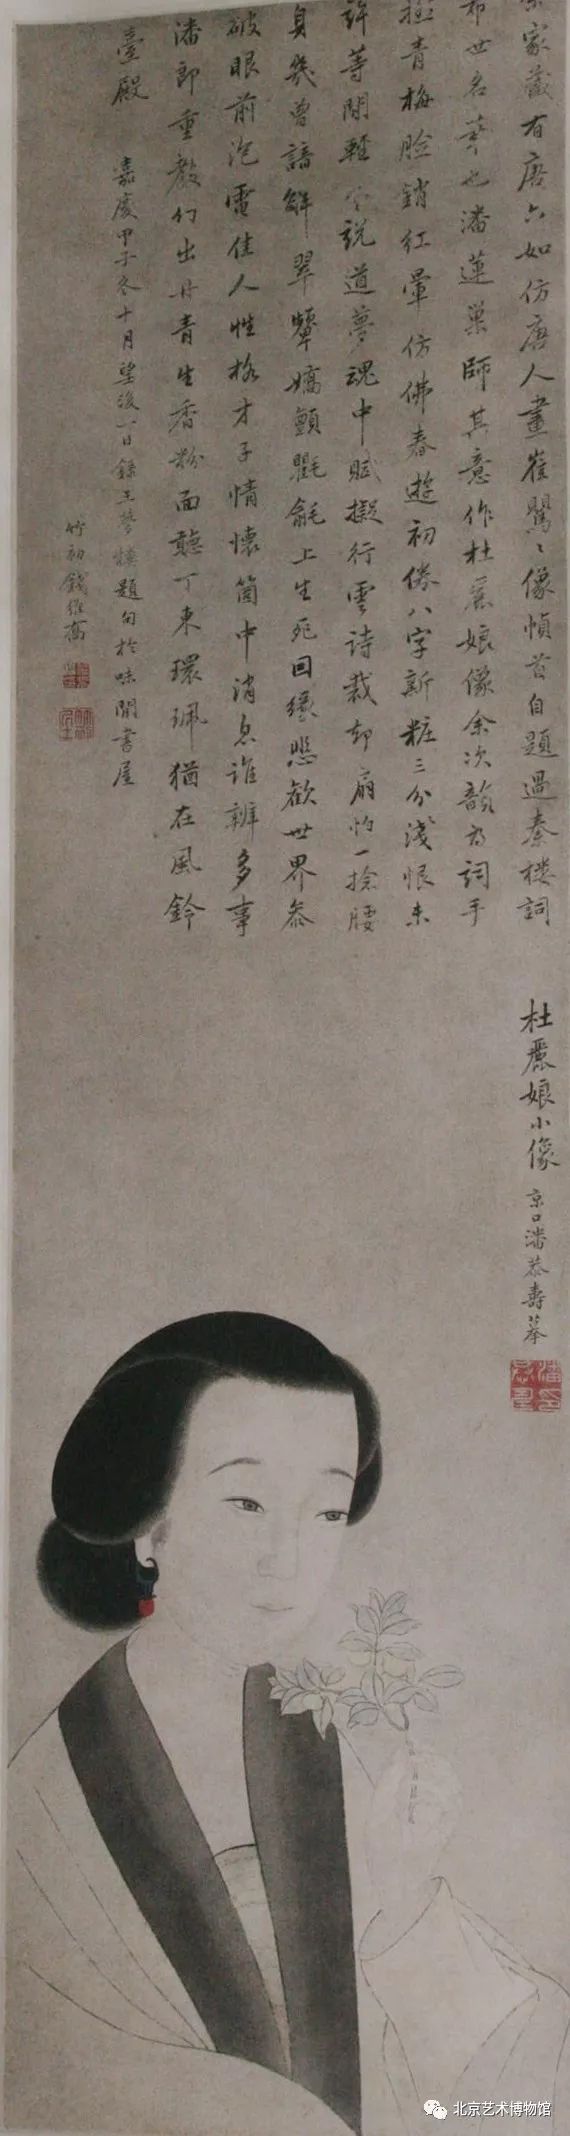 家藏有唐六如仿唐人畫崔鶯〻像幀首自題過秦樓詞
希世名筆也潘蓮巢師其意作杜麗娘像余次韻為詞手
撚青梅臉銷紅暈仿佛春遊初倦八字新粧三分淺恨未
許等閒輕說道夢魂中賦擬行雲詩裁却扇怕一捻腰
身幾曾諳翠顰嬌顫氍毹上生死回悲歡世界參
破眼前泡電佳人性格才子情懷箇中消息誰辨多事
潘郎重教幻出丹青生香粉面聽丁東環珮猶在風鈴
臺殿 嘉慶甲子冬十月望後一日錄王夢樓題句於味閒書屋
竹初錢維喬
杜麗娘小像 京口潘恭壽摹
北京艺术博物馆